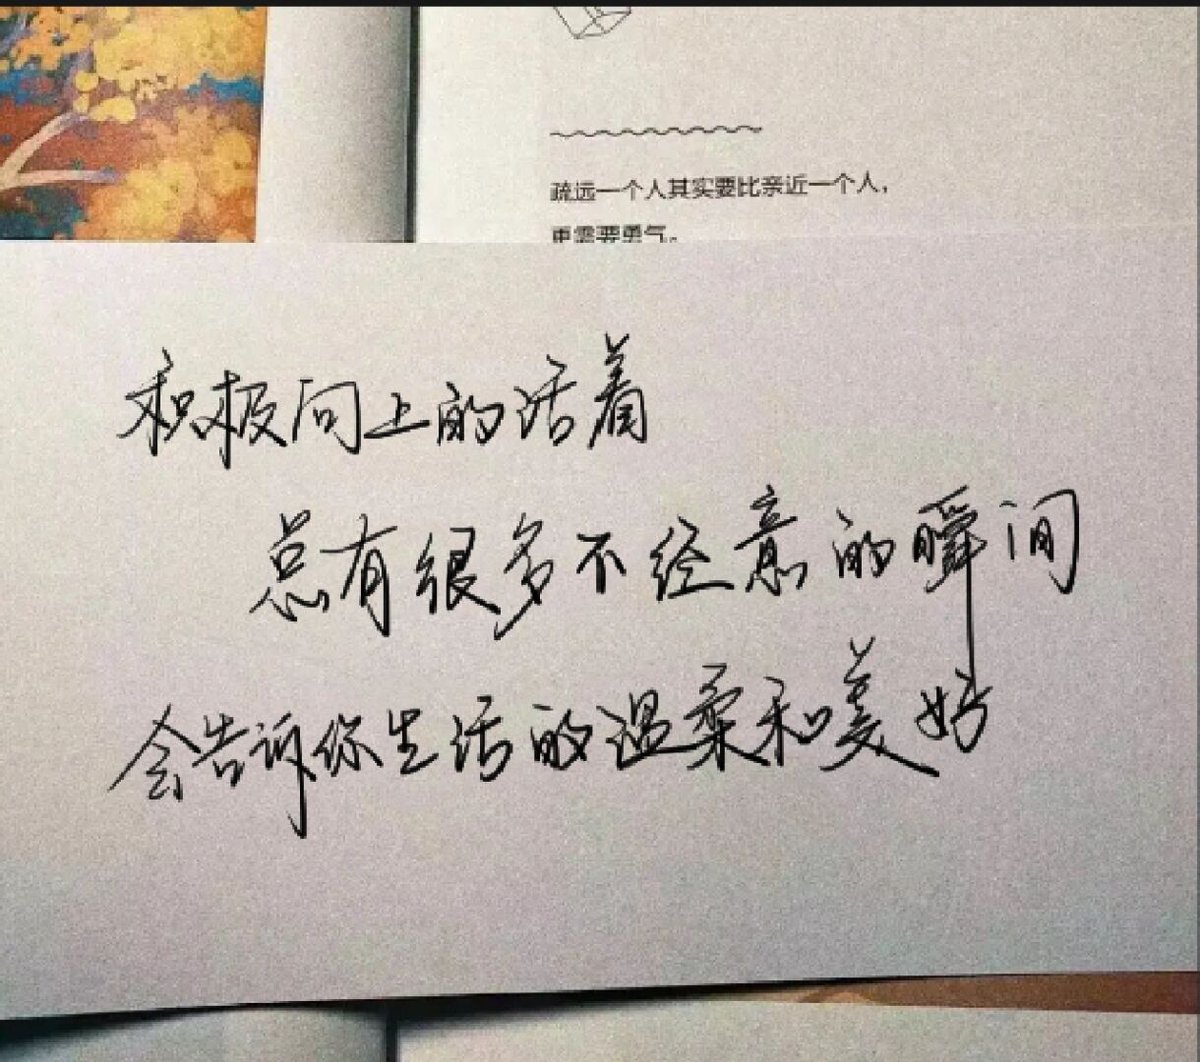 疏远一个人其实要比亲近一个人，
更需要勇气。
积极向上的活着
总有很多不经意的瞬间
会告诉你生活的温柔和美好